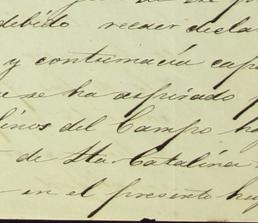 debido recaer decla
y contumacia cap
se ha aspirado
linos del Campo
de Sta. Catalina
en el presente